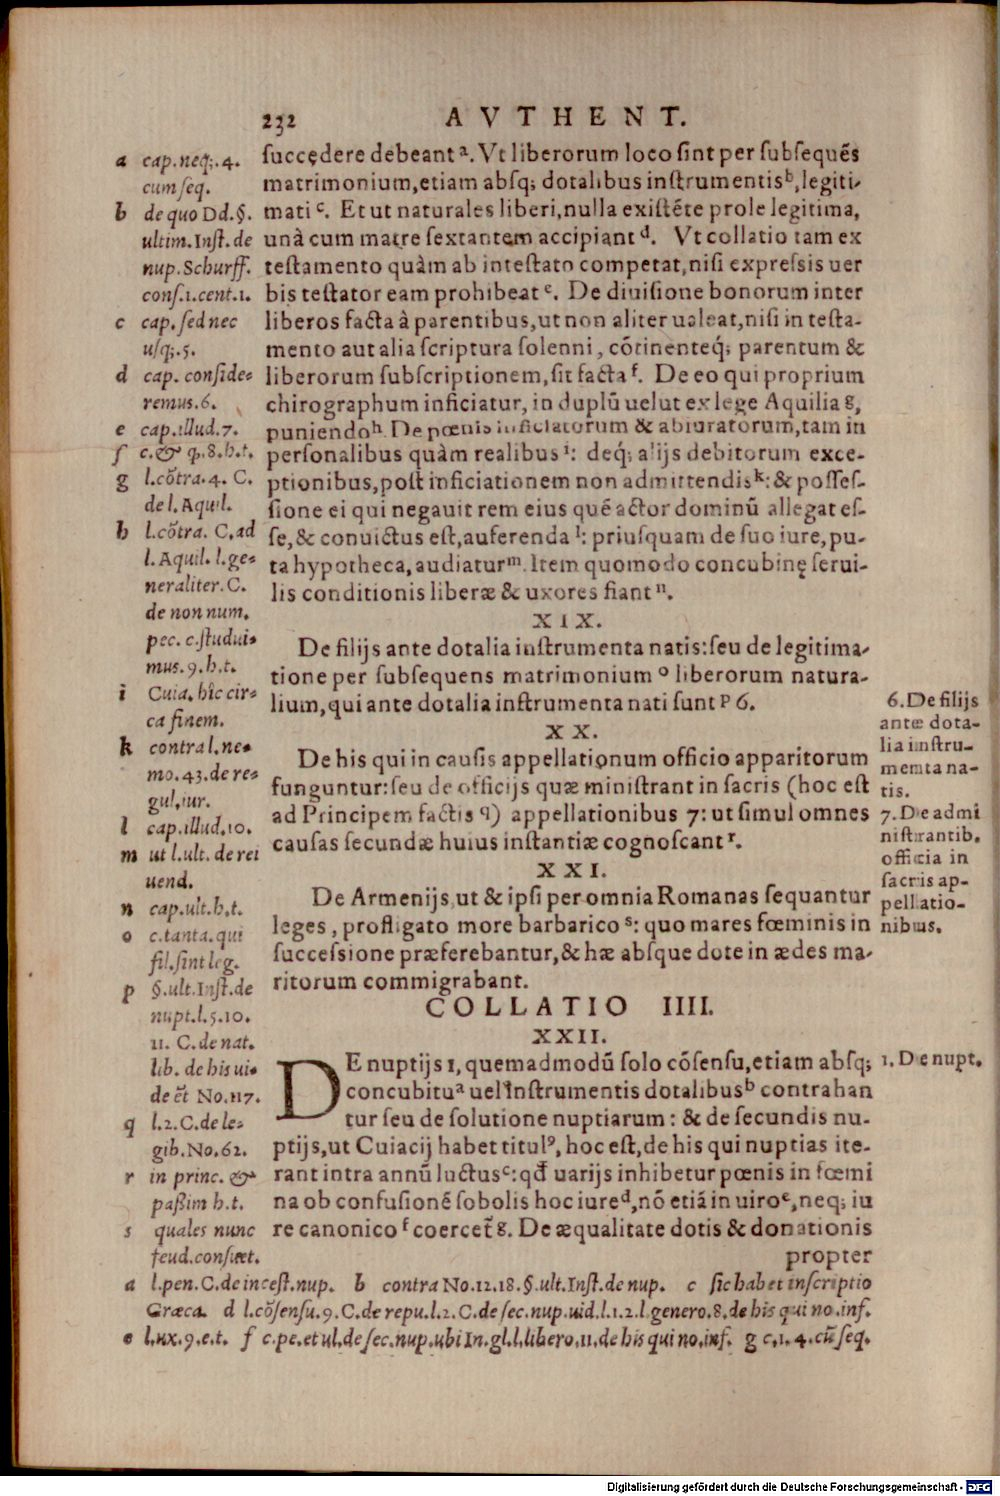 232 AVTHENT.
succędere debeant a. Vt liberorum loco sint per subsequēs
matrimonium, etiam absq; dotalibus instrumentis b, legiti-
mati c. Et ut naturales liberi, nulla existēte prole legitima,
unà cum matre sextantem accipiant d. Vt collatio tam ex
testamento quàm ab intestato competat, nisi expressis uer
bis testator eam prohibeat e. De diuisione bonorum inter
liberos facta à parentibus, ut non aliter ualeat, nisi in testa-
mento aut alia scriptura solenni, cōtinenteq́; parentum &
liberorum subscriptionem, sit facta f. De eo qui proprium
chirographum inficiatur, in duplū uelut ex lege Aquilia g,
puniendo h. De pœnis inficiatorum & abiuratorum, tam in
personalibus quàm realibus i: deq́; alijs debitorum exce-
ptionibus, post inficiationem non admittendis k: & posses-
sione ei qui negauit rem eius quē actor dominū allegat es-
se, & conuictus est, auferenda l: priusquam de suo iure, pu-
ta hypotheca, audiatur m. Item quomodo concubinę serui-
lis conditionis liberæ & uxores fiant n.
XIX.
De filijs ante dotalia instrumenta natis: seu de legitima-
tione per subsequens matrimonium o liberorum natura-
lium, qui ante dotalia instrumenta nati sunt p 6.
XX.
De his qui in causis appellationum officio apparitorum
funguntur: seu de officijs quæ ministrant in sacris (hoc est
ad Principem factis q) appellationibus 7: ut simul omnes
causas secundæ huius instantiæ cognoscant r.
XXI.
De Armenijs, ut & ipsi per omnia Romanas sequantur
leges, profligato more barbarico s: quo mares fœminis in
successione præferebantur, & hæ absque dote in ædes ma-
ritorum commigrabant.
COLLATIO IIII.
XXII.
DE nuptijs 1, quemadmodū solo cōsensu, etiam absq;
concubitu a uel instrumentis dotalibus b contrahan
tur seu de solutione nuptiarum: & de secundis nu-
ptijs, ut Cuiacij habet titulꝰ, hoc est, de his qui nuptias ite-
rant intra annū luctus c: qđ uarijs inhibetur pœnis in fœmi
na ob confusionē sobolis hoc iure d, nō etiā in uiro e, neq; iu
re canonico f coercet̃ g. De æqualitate dotis & donationis
propter
a cap. neq;. 4.
cum seq.
b de quo Dd. §.
ultim. Inst. de
nup. Schurff.
cons. 1. cent. 1.
c cap. sed nec
usq;. 5.
d cap. conside-
remus. 6.
e cap. illud. 7.
f c. & q. 8. h. t.
g l. cōtra. 4. C.
de l. Aquil.
h l. cōtra. C. ad
l. Aquil. l. ge-
neraliter. C.
de non num.
pec. c. studui-
mus. 9. h. t.
i Cuia. hîc cir-
ca finem.
k contra l. ne-
mo. 43. de re-
gul. iur.
l cap. illud. 10.
m ut l. ult. de rei
uend.
n cap. ult. h. t.
o c. tanta. qui
fil. sint leg.
p §. ult. Inst. de
nupt. l. 5. 10.
11. C. de nat.
lib. de his ui-
de et̃ No. 117.
q l. 2. C. de le-
gib. No. 62.
r in princ. &
passim h. t.
s quales nunc
feud. consuet.
6. De filijs
ante dota-
lia instru-
menta na-
tis.
7. De admi
nistrantib.
officia in
sacris ap-
pellatio-
nibus.
1. De nupt.
a l. pen. C. de incest. nup. b contra No. 12. 18. §. ult. Inst. de nup. c sic habet inscriptio
Græca. d l. cōsensu. 9. C. de repu. l. 2. C. de sec. nup. uid. l. 1. 2. l. genero. 8. de his qui no. inf.
e l. ux. 9. e. t. f c. pe. et ul. de sec. nup. ubi In. gl. l. libero. 11. de his qui no. inf. g c. 1. 4. cū seq.
Digitalisierung gefördert durch die Deutsche Forschungsgemeinschaft - DFG